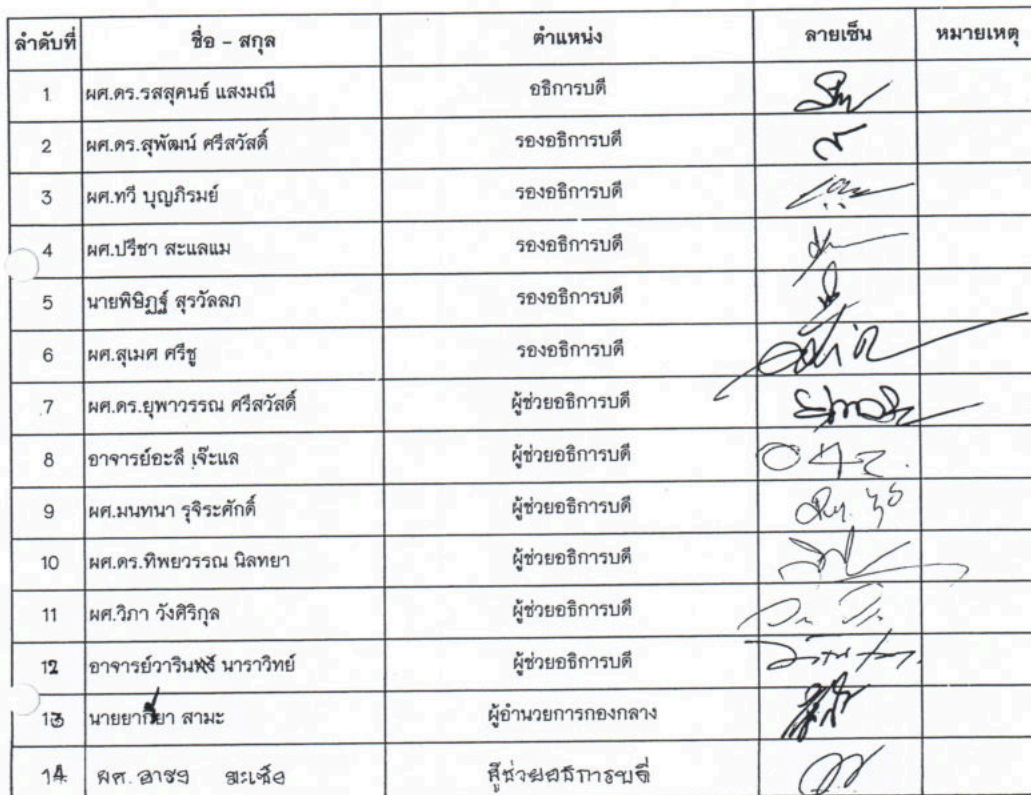 ลำดับที่ ชื่อ - สกุล ตำแหน่ง ลายเซ็น หมายเหตุ
1 ผศ.ดร.รสสุคนธ์ แสงมณี อธิการบดี
2 ผศ.ดร.สุพัฒน์ ศรีสวัสดิ์ รองอธิการบดี
3 ผศ.ทวี บุญภิรมย์ รองอธิการบดี
4 ผศ.ปรีชา สะแลแม รองอธิการบดี
5 นายพิษิฏฐ์ สุรวัลลภ รองอธิการบดี
6 ผศ.สุเมศ ศรีชู รองอธิการบดี
7 ผศ.ดร.ยุพาวรรณ ศรีสวัสดิ์ ผู้ช่วยอธิการบดี
8 อาจารย์อะลี เจ๊ะแล ผู้ช่วยอธิการบดี
9 ผศ.มนทนา รุจิระศักดิ์ ผู้ช่วยอธิการบดี
10 ผศ.ดร.ทิพยวรรณ นิลทยา ผู้ช่วยอธิการบดี
11 ผศ.วิภา วังศิริกุล ผู้ช่วยอธิการบดี
12 นาราวิทย์ ผู้ช่วยอธิการบดี
13 สามะ ผู้อำนวยการกองกลาง
14 ผศ. ผู้ช่วยอธิการบดี